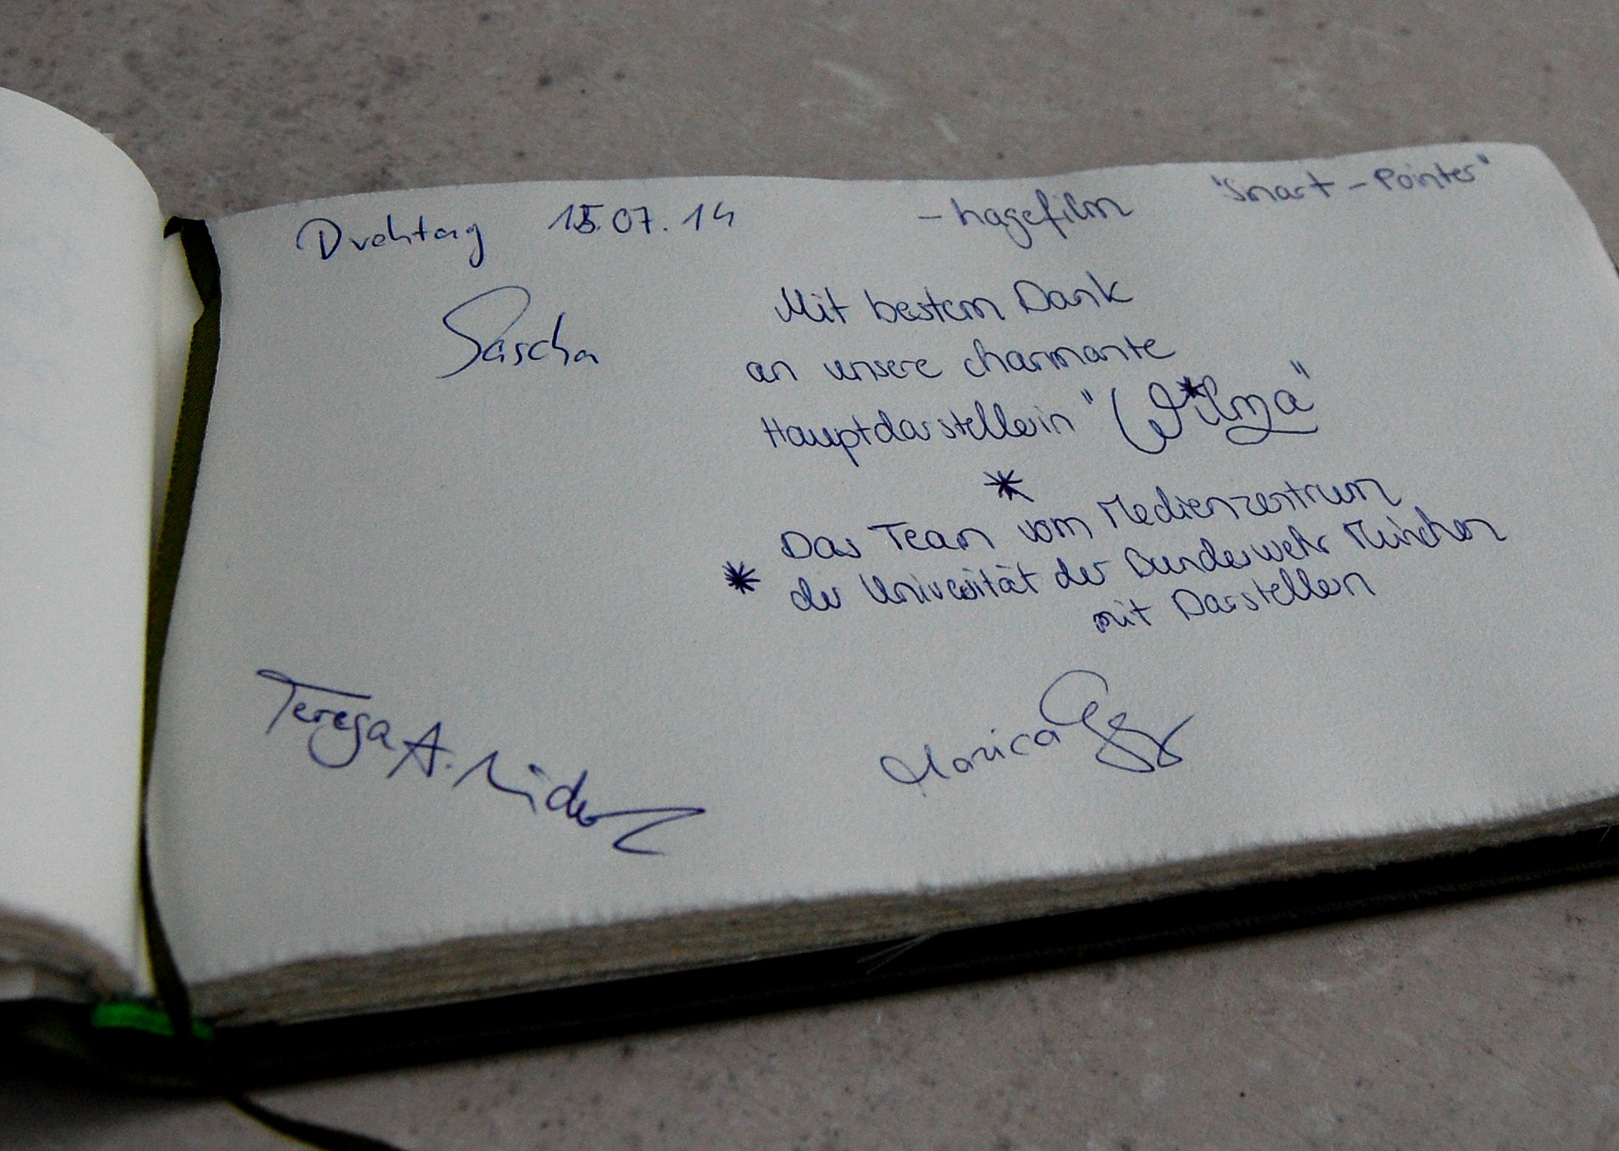 Drehtag 15.07.14 - Imagefilm "Smart-Pointer"
Sascha
Mit bestem Dank
an unsere charmante
Hauptdarstellerin "Wilma"
Das Team vom Medienzentrum
der Universität der Bundeswehr München
mit Darstellern
Teresa A.
Monica